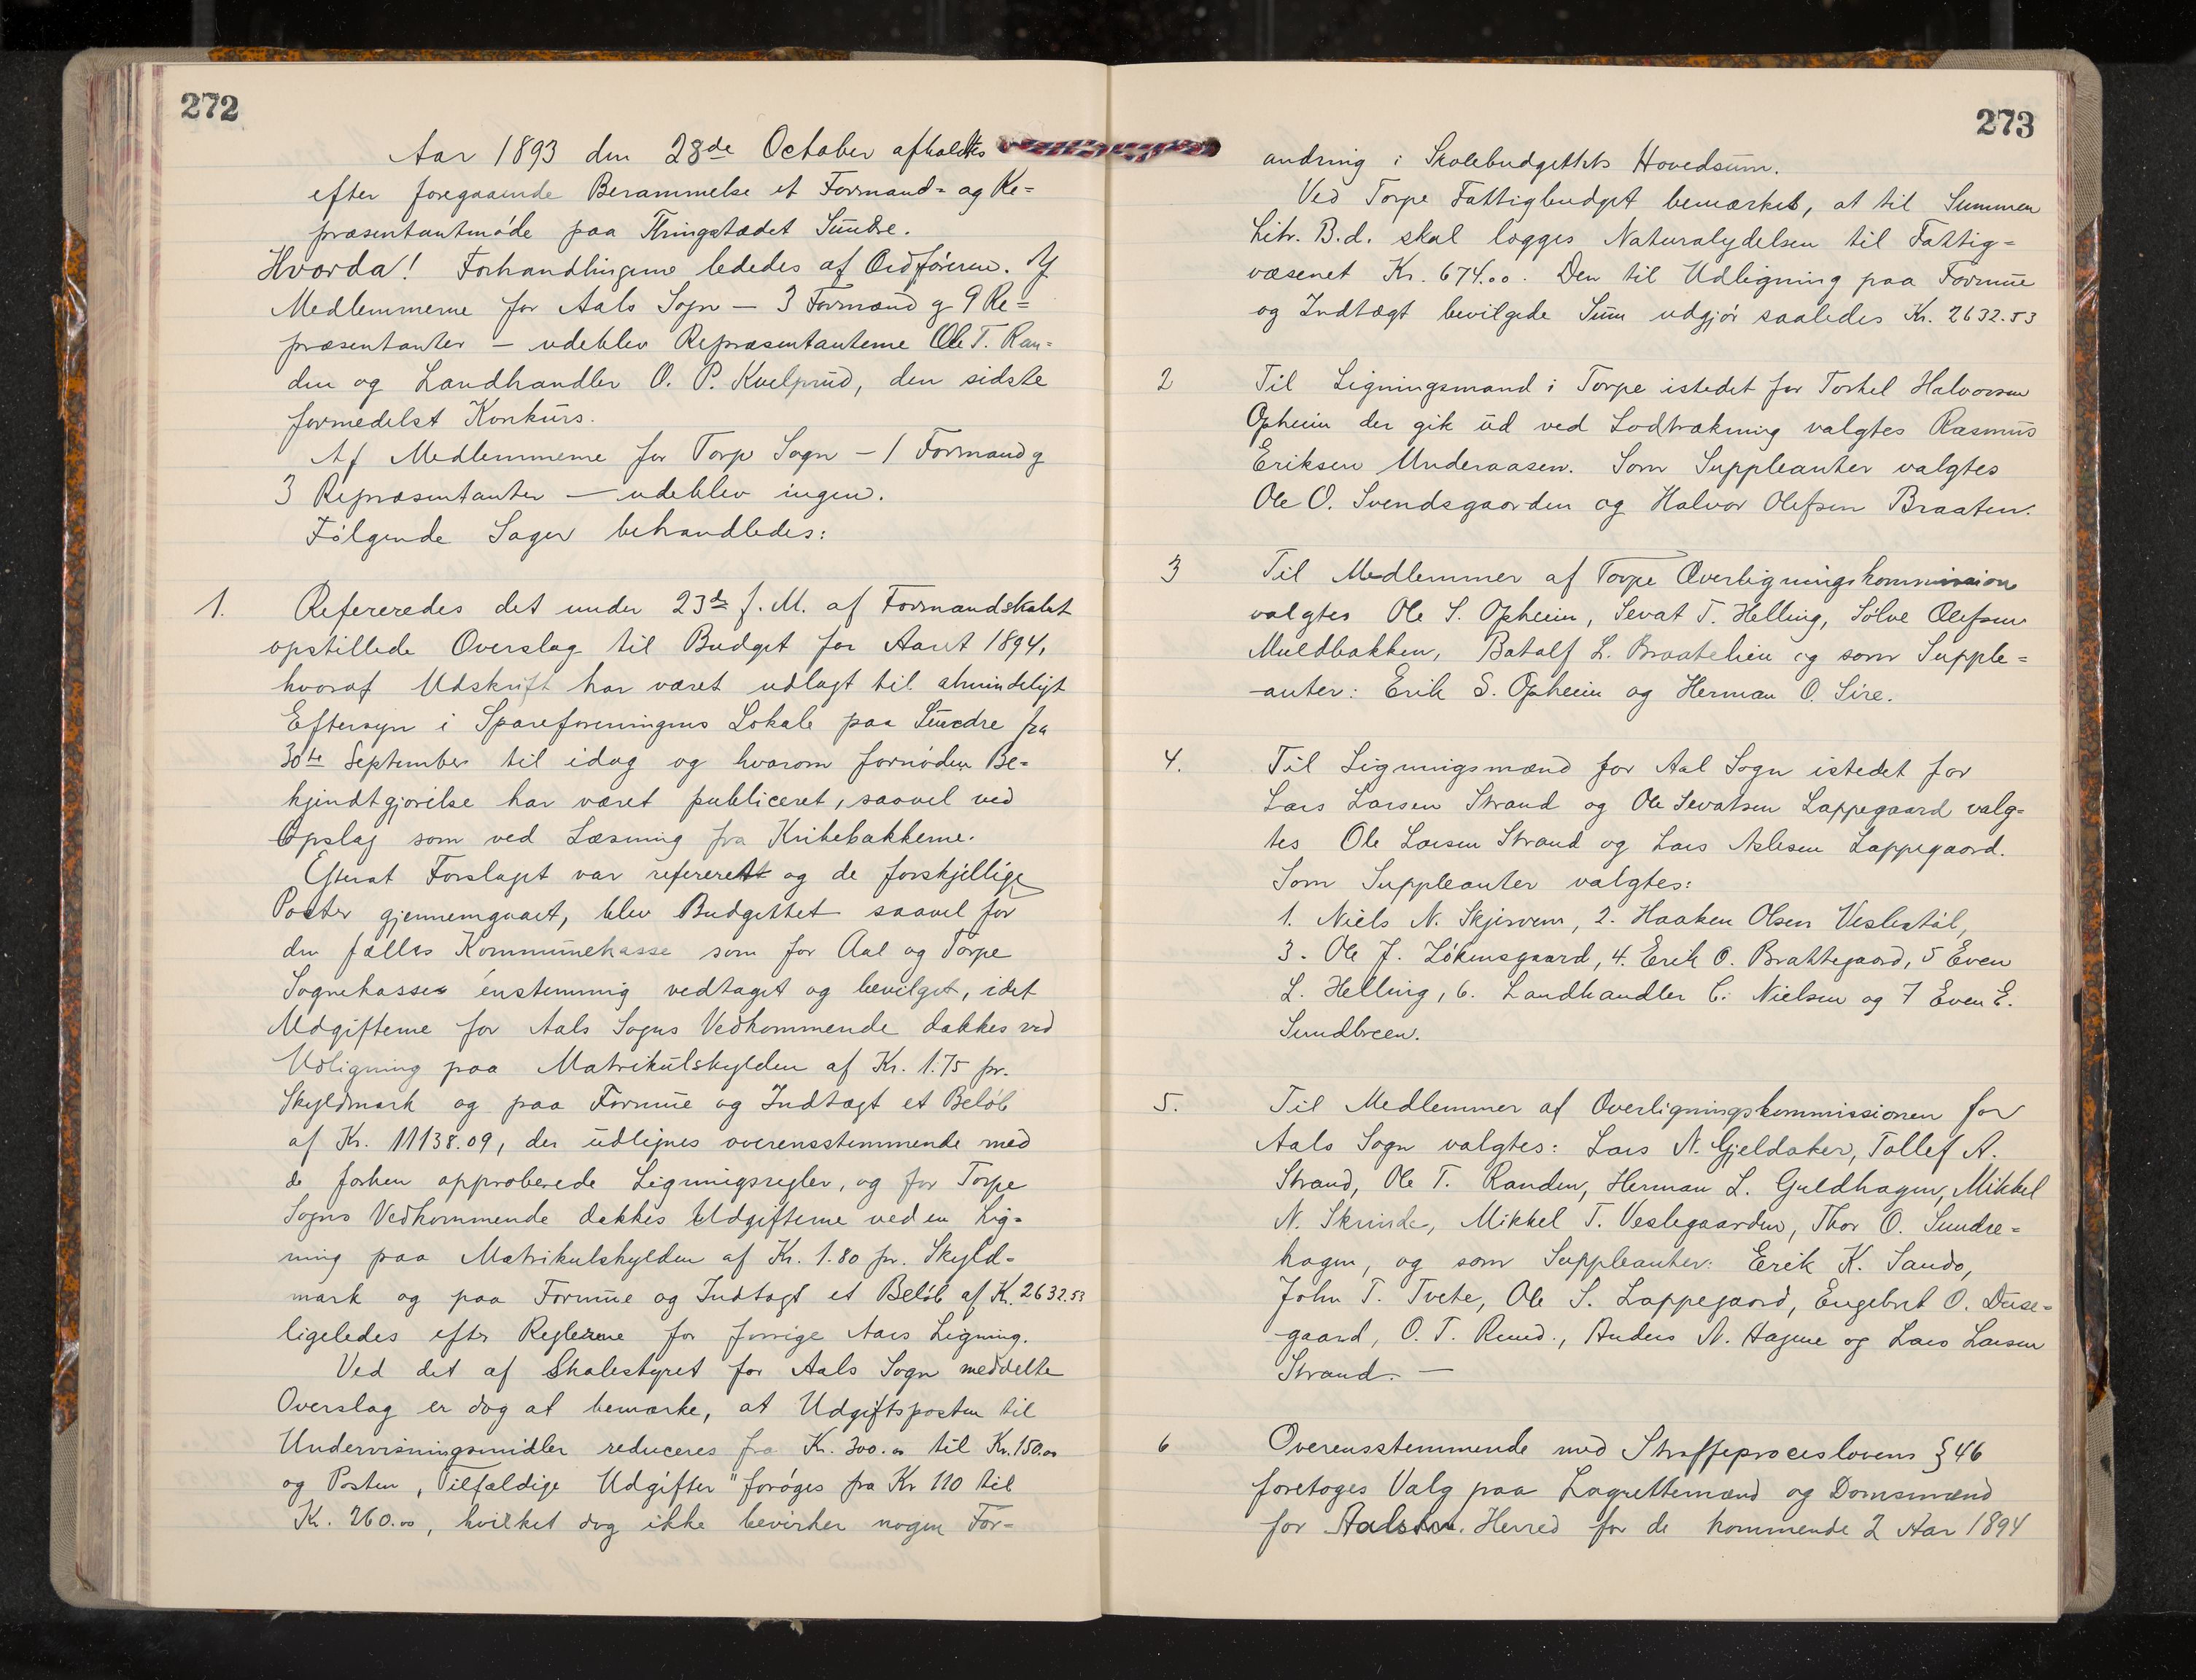 272
Aar 1893 den 28de October afholdtes
efter foregaaende Berammelse et Formand= og Re=
præsentantmøde paa Thingstedet Sundre.
Hvorda! Forhandlingerne lededes af Ordføreren. Af
Medlemmerne for Aals Sogn — 3 Formænd og 9 Re=
præsentanter — udeblev Repræsentanterne Ole T. Ran=
den og Landhandler O. P. Kvelprud, den sidste
formedelst Konkurs.
Af Medlemmerne for Torpe Sogn — 1 Formand og
3 Repræsentanter — udeblev ingen.
Følgende Sager behandledes:
1. Refereredes det under 23de f. M. af Formandskabet
opstillede Overslag til Budget for Aaret 1894,
hvoraf Udskrift har været udlagt til almindeligt
Eftersyn i Spareforeningens Lokale paa Sundre fra
30te September til idag og hvorom fornøden Be=
kjendtgjørelse har været publiceret, saavel ved
Opslag som ved Læsning fra Kirkebakkerne.
Efterat Forslaget var refereret og de forskjellige
Poster gjennemgaaet, blev Budgettet saavel for
den fælles Kommunekasse som for Aal og Torpe
Sognekasser énstemmig vedtaget og bevilget, idet
Udgifterne for Aals Sogns Vedkommende dækkes ved
Udligning paa Matrikulskylden af Kr. 1.75 pr.
Skyldmark og paa Formue og Indtægt et Beløb
af Kr. 11138.09, der udlignes overensstemmende med
de forhen approberede Ligningsregler, og for Torpe
Sogns Vedkommende dækkes Udgifterne ved en Lig=
ning paa Matrikulskylden af Kr. 1.80 pr. Skyld=
mark og paa Formue og Indtægt et Beløb af Kr. 2632.53
ligeledes efter Reglerne for forrige Aars Ligning.
Ved det af Skolestyret for Aals Sogn meddelte
Overslag er dog at bemærke, at Udgiftsposten til
Undervisningsmidler reduceres fra Kr. 300.00 til Kr. 150.00
og Posten „Tilfældige Udgifter" forøges fra Kr 110 til
Kr. 260.00, hvilket dog ikke bevirker nogen For=
273
andring i Skolebudgettets Hovedsum.
Ved Torpe Fattigbudget bemærkes, at til Summen
Litr. B.d. skal lægges Naturalydelsen til Fattig=
væsenet Kr. 674.00. Den til Udligning paa Formue
og Indtægt bevilgede Sum udgjør saaledes Kr. 2632.53
2 Til Ligningsmand i Torpe istedet for Torkel Halvorsen
Opheim der gik ud ved Lodtrækning valgtes Rasmus
Eriksen Underaasen. Som Suppleanter valgtes
Ole O. Svendsgaarden og Halvor Olefsen Braaten.
3 Til Medlemmer af Torpe Overligningskommission
valgtes Ole S. Opheim, Sevat T. Helling, Sølve Olefsen
Muldbakken, Botolf L. Braatelien og som Supple=
-anter: Erik S. Opheim og Herman O. Sire.
4. Til Ligningsmænd for Aal Sogn istedet for
Lars Larsen Strand og Ole Sevatsen Lappegaard valg=
tes Ole Larsen Strand og Lars Aslesen Lappegaard.
Som Suppleanter valgtes:
1. Niels N. Skjervem, 2. Haaken Olsen Veslestøl,
3. Ole J. Løkensgaard, 4. Erik O. Brattegaard, 5 Even
L. Helling, 6. Landhandler C. Nielsen og 7 Even E.
Sundbreen.
5. Til Medlemmer af Overligningskommissionen for
Aals Sogn valgtes: Lars N. Gjeldaker, Tollef A.
Strand, Ole T. Randen, Herman L. Guldhagen, Mikkel
N. Skrinde, Mikkel T. Veslegaarden, Thor O. Sundre=
hagen, og som Suppleanter: Erik K. Sando,
John T. Tvete, Ole S. Lappegaard, Engebret O. Duse=
-gaard, O. T. Rund., Anders N. Hagene og Lars Larsen
Strand. —
6 Overensstemmende med Straffeproceslovens § 46
foretoges Valg paa Lagrettemænd og Domsmænd
for Aals Herred for de kommende 2 Aar 1894